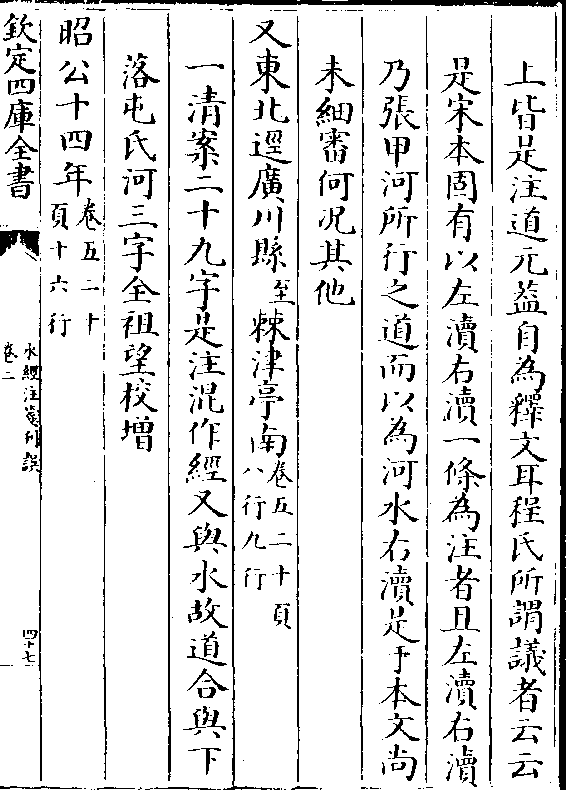 上皆是注道元葢自為釋文耳程氏所謂議者云云
是宋本固有以左瀆右瀆一條為注者且左瀆右瀆
乃張甲河所行之道而以為河水右瀆是于本文尚
未細審何况其他
又東北逕廣川縣至棘津亭南卷五二十頁八行九行
一清案二十九字是注混作經又與水故道合與下
落屯氏河三字全祖望校增
昭公十四年卷五二十頁十六行
欽定四庫全書
水經注箋刊誤
卷二
四十七